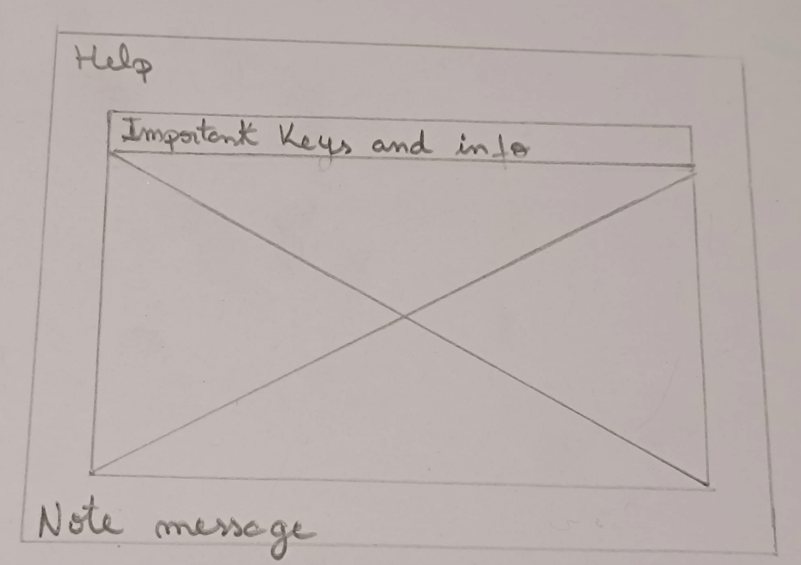 Help
Important Keys and info
Note message